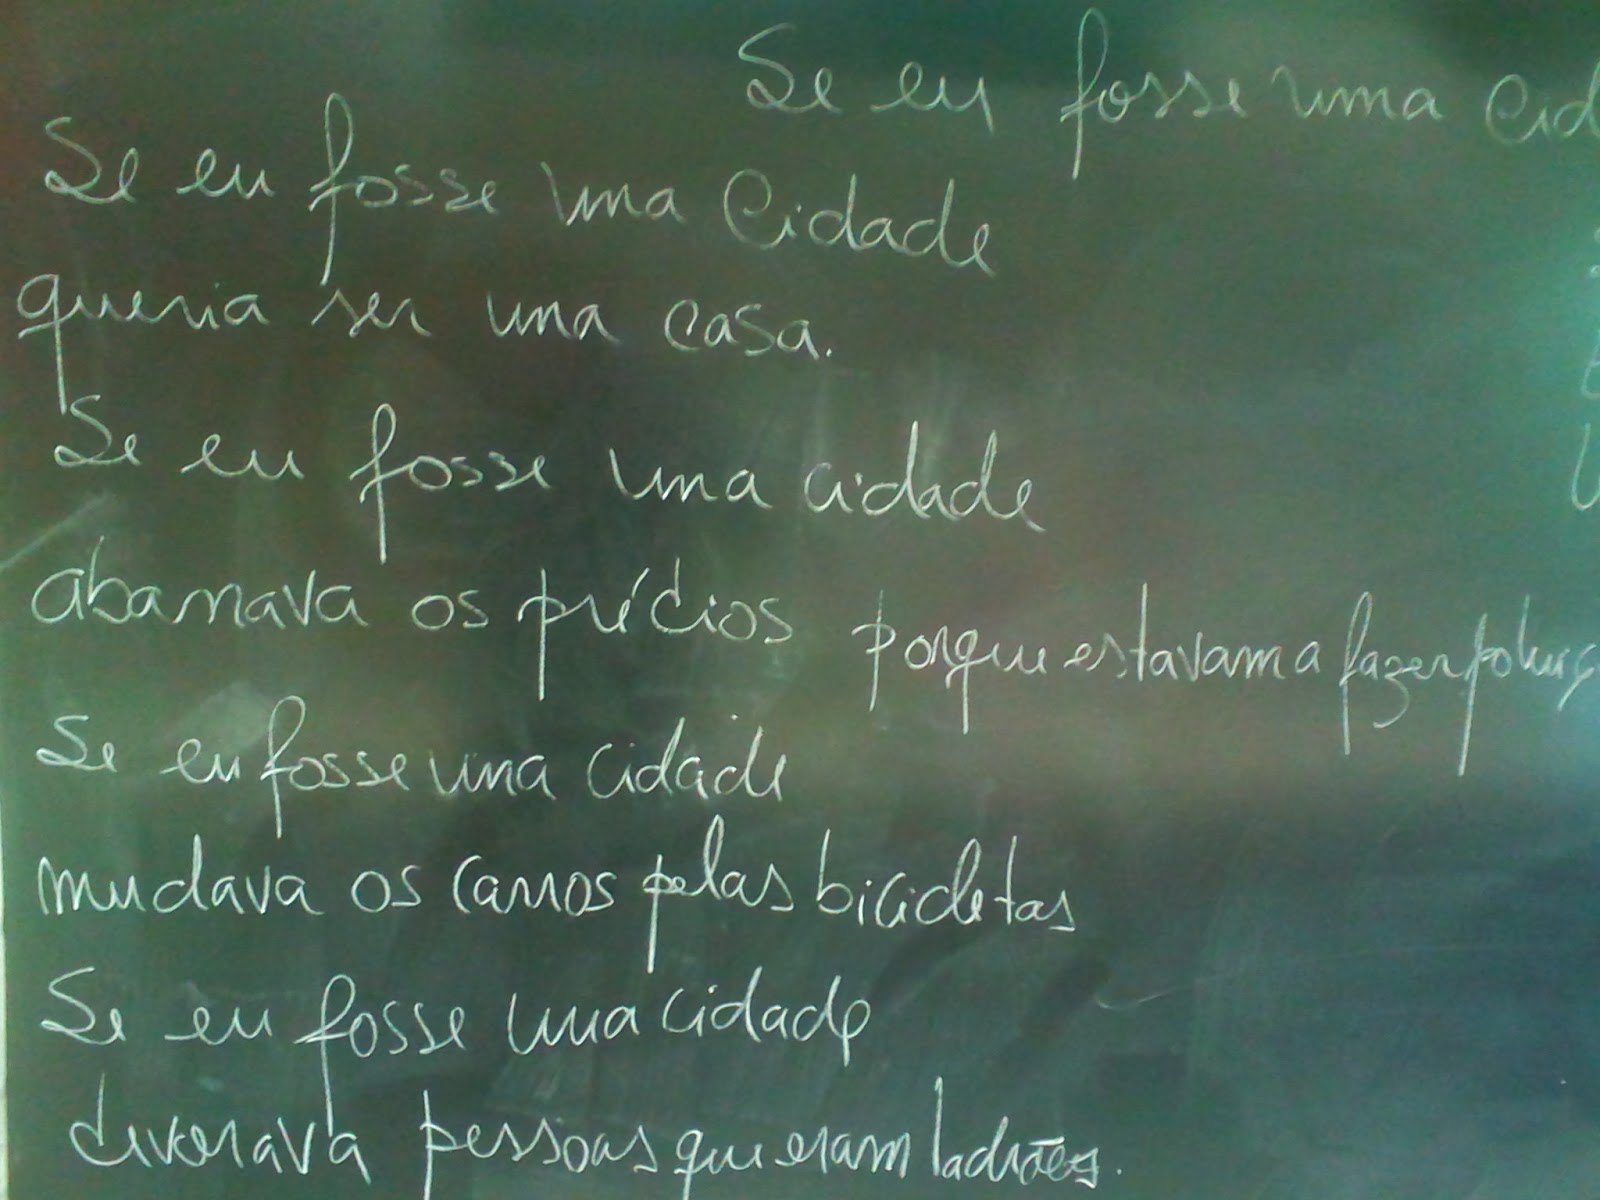 Se eu fosse uma cid
Se eu fosse uma Cidade
queria ser uma casa.
Se eu fosse uma cidade
abanava os prédios porque estavam a fazer poluiç
Se eu fosse uma cidade
mudava os carros pelas bicicletas
Se eu fosse uma cidade
divorava pessoas que eram ladrões.